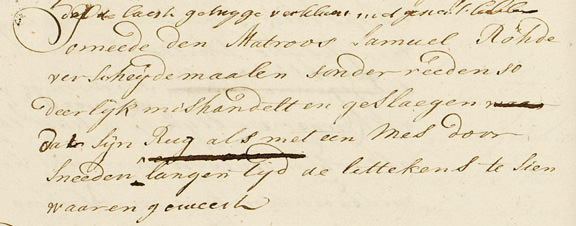 de laeste getuyge verklaert
omeede den Matroos Samuel Röhde
verscheijdemaalen sonder reeden so
deerlijk mishandelt en geslaegen
dat sijn Rug als met een Mes door
sneeden langen tijd de littekens te sien
waaren geweest